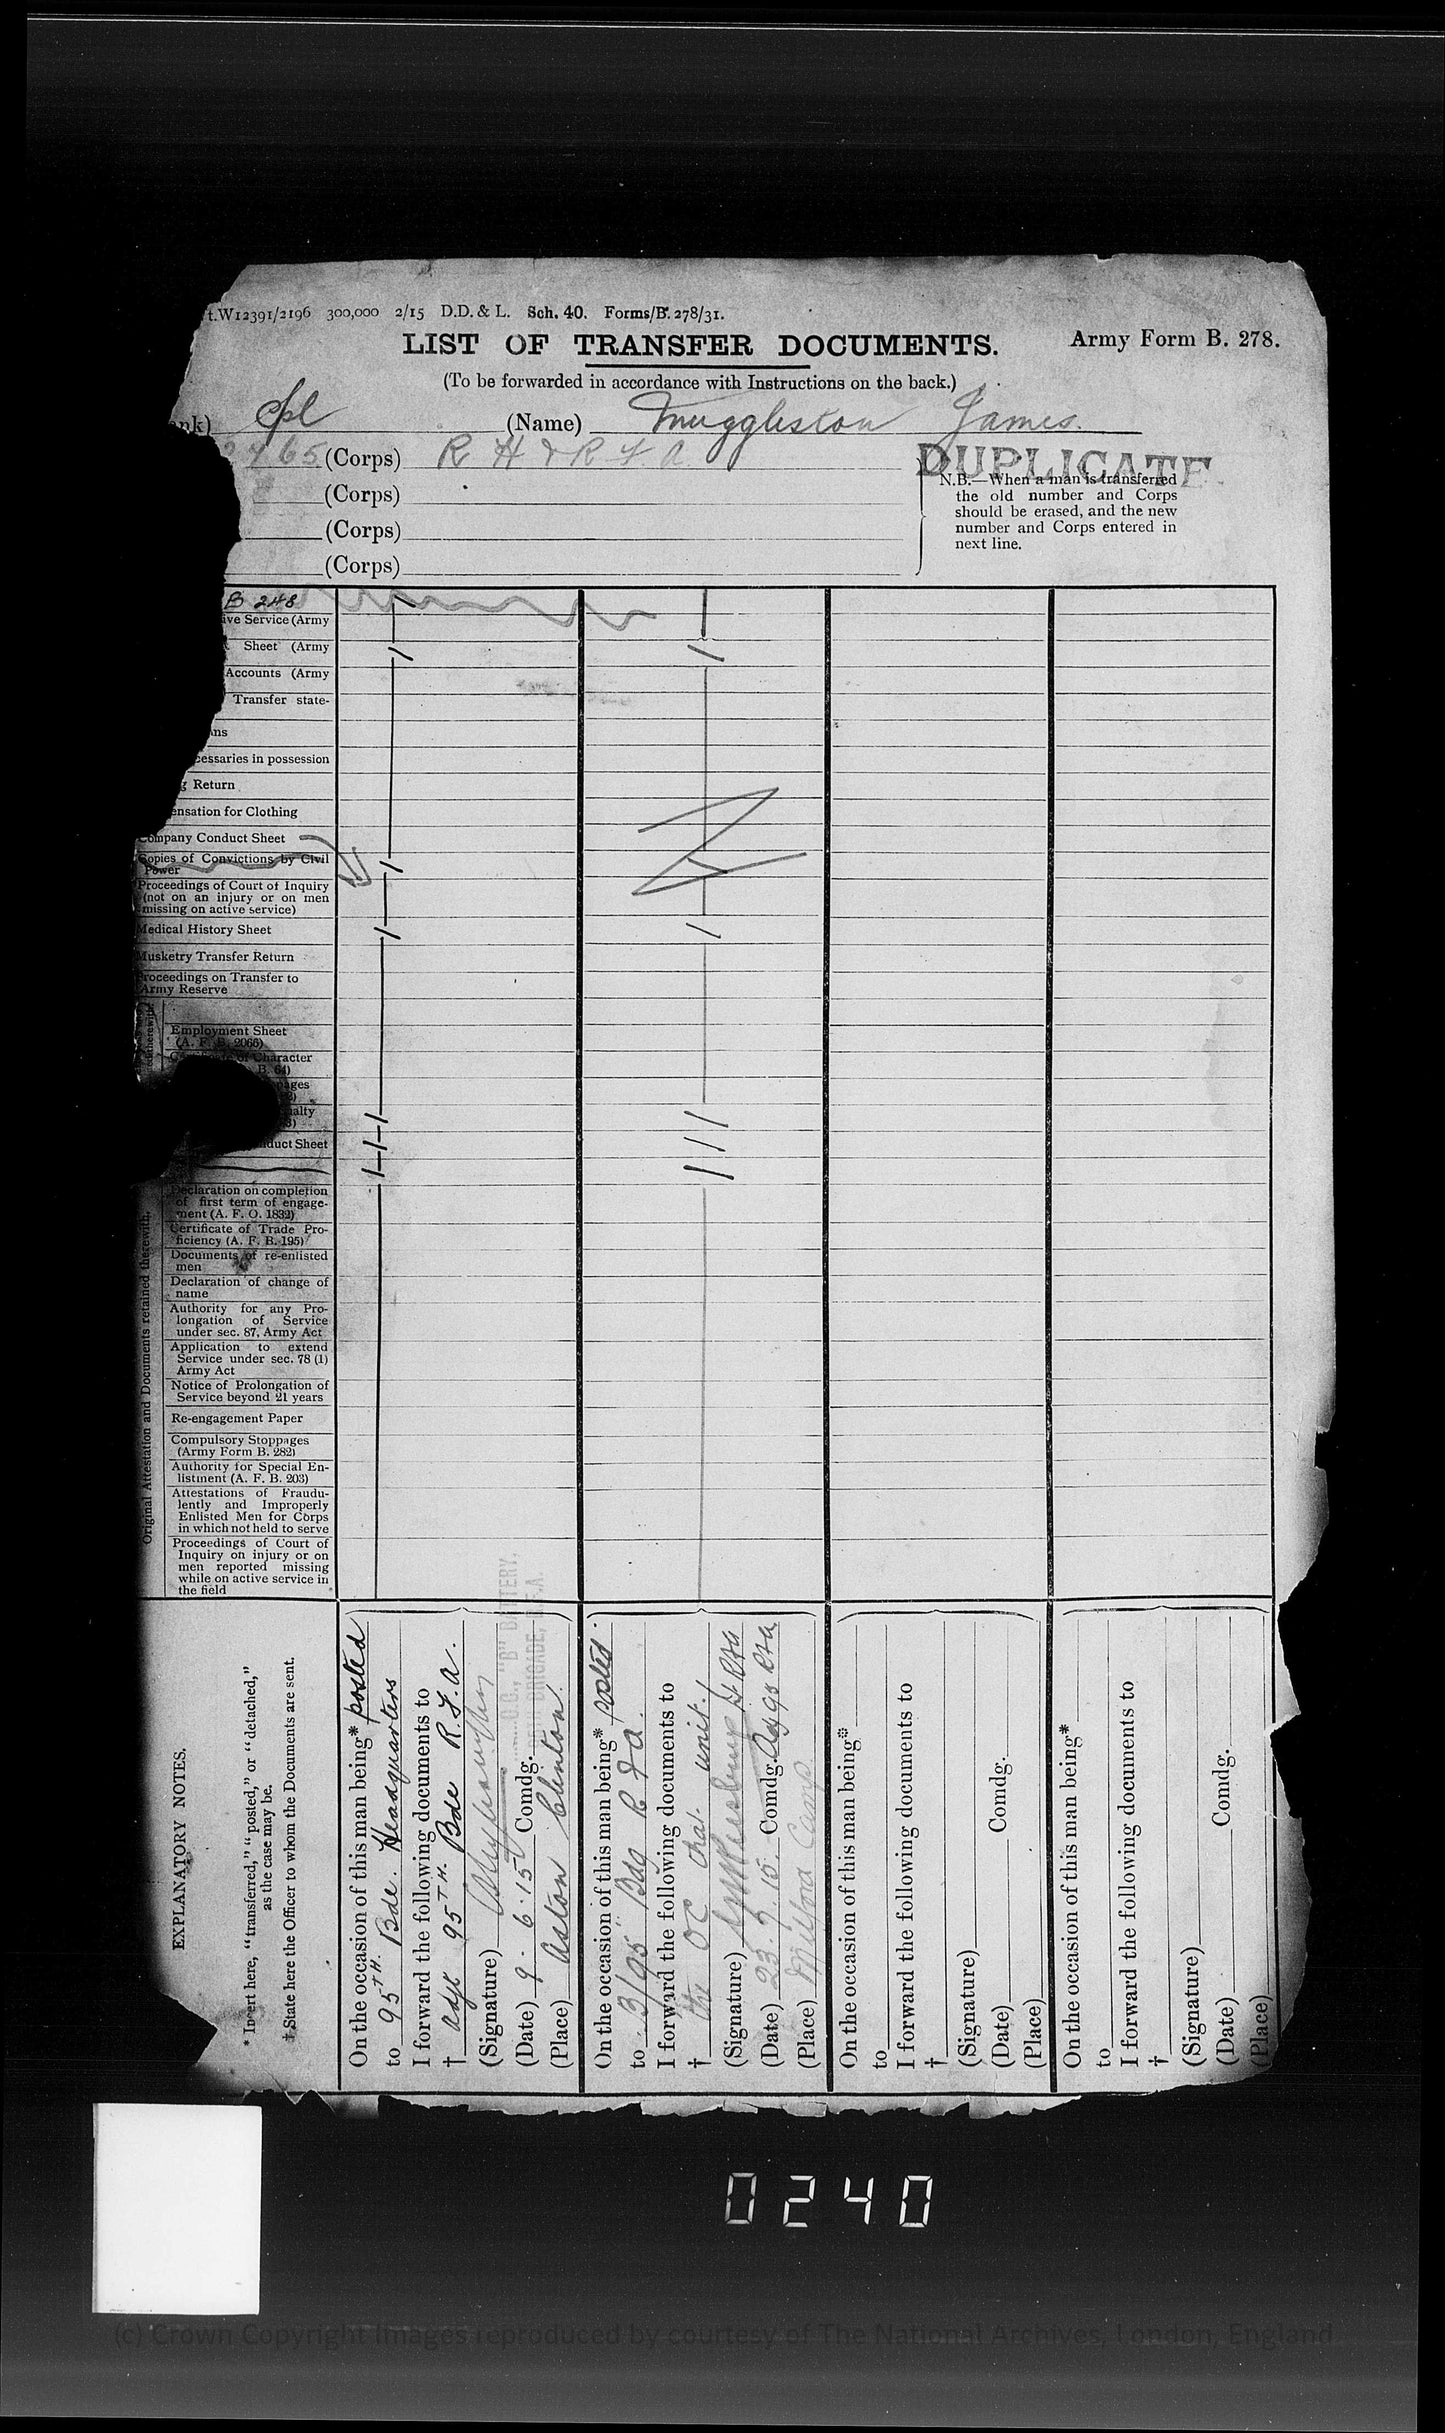 t.W12391/2196 300,000 2/15 D.D. & L. Sch. 40. Forms/B. 278/31.
LIST OF TRANSFER DOCUMENTS.
Army Form B. 278.
(To be forwarded in accordance with Instructions on the back.)
nk) Cpl (Name) Muggleston James.
765 (Corps) R H & R F A
(Corps)
(Corps)
(Corps)
DUPLICATE
N.B.—When a man is transferred
the old number and Corps
should be erased, and the new
number and Corps entered in
next line.
B 248
ive Service (Army
Sheet (Army
Accounts (Army
Transfer state-
ns
cessaries in possession
g Return
ensation for Clothing
Company Conduct Sheet
Copies of Convictions by Civil
Power
Proceedings of Court of Inquiry
(not on an injury or on men
missing on active service)
Medical History Sheet
Musketry Transfer Return
Proceedings on Transfer to
Army Reserve
Original Attestation and Documents retained therewith.
Employment Sheet
(A. F. B. 2066)
Character
B. 64)
pages
alty
duct Sheet
Declaration on completion
of first term of engage-
ment (A. F. O. 1832)
Certificate of Trade Pro-
ficiency (A. F. B. 195)
Documents of re-enlisted
men
Declaration of change of
name
Authority for any Pro-
longation of Service
under sec. 87, Army Act
Application to extend
Service under sec. 78 (1)
Army Act
Notice of Prolongation of
Service beyond 21 years
Re-engagement Paper
Compulsory Stoppages
(Army Form B. 282)
Authority for Special En-
listment (A. F. B. 203)
Attestations of Fraudu-
lently and Improperly
Enlisted Men for Corps
in which not held to serve
Proceedings of Court of
Inquiry on injury or on
men reported missing
while on active service in
the field
EXPLANATORY NOTES.
* Insert here, "transferred," "posted," or "detached,"
as the case may be.
† State here the Officer to whom the Documents are sent.
On the occasion of this man being* posted
to 95TH. Bde. Headquarters
I forward the following documents to
† adjt 95TH. Bde R.F.A.
(Signature)
O.C., "B" BATTERY,
BRIGADE, R.F.A.
(Date) 9.6.15 Comdg.
(Place) Aston Clinton.
On the occasion of this man being* posted
to B/95 Bde R F A.
I forward the following documents to
† The OC unit.
(Signature)
(Date) 23.9.15. Comdg. RFA
(Place) Milford Camp
On the occasion of this man being*
to
I forward the following documents to
†
(Signature)
(Date) Comdg.
(Place)
On the occasion of this man being*
to
I forward the following documents to
†
(Signature)
(Date) Comdg.
(Place)
0240
(c) Crown Copyright Images reproduced by courtesy of The National Archives, London, England